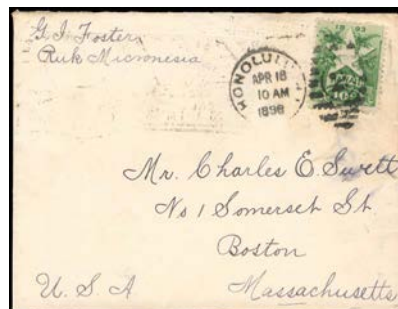 G. I. Foster
Ruk Micronesia
HONOLULU
APR 18
10 AM
1898
Mr. Charles E. Swett
No 1 Somerset St
Boston
U. S. A
Massachusetts